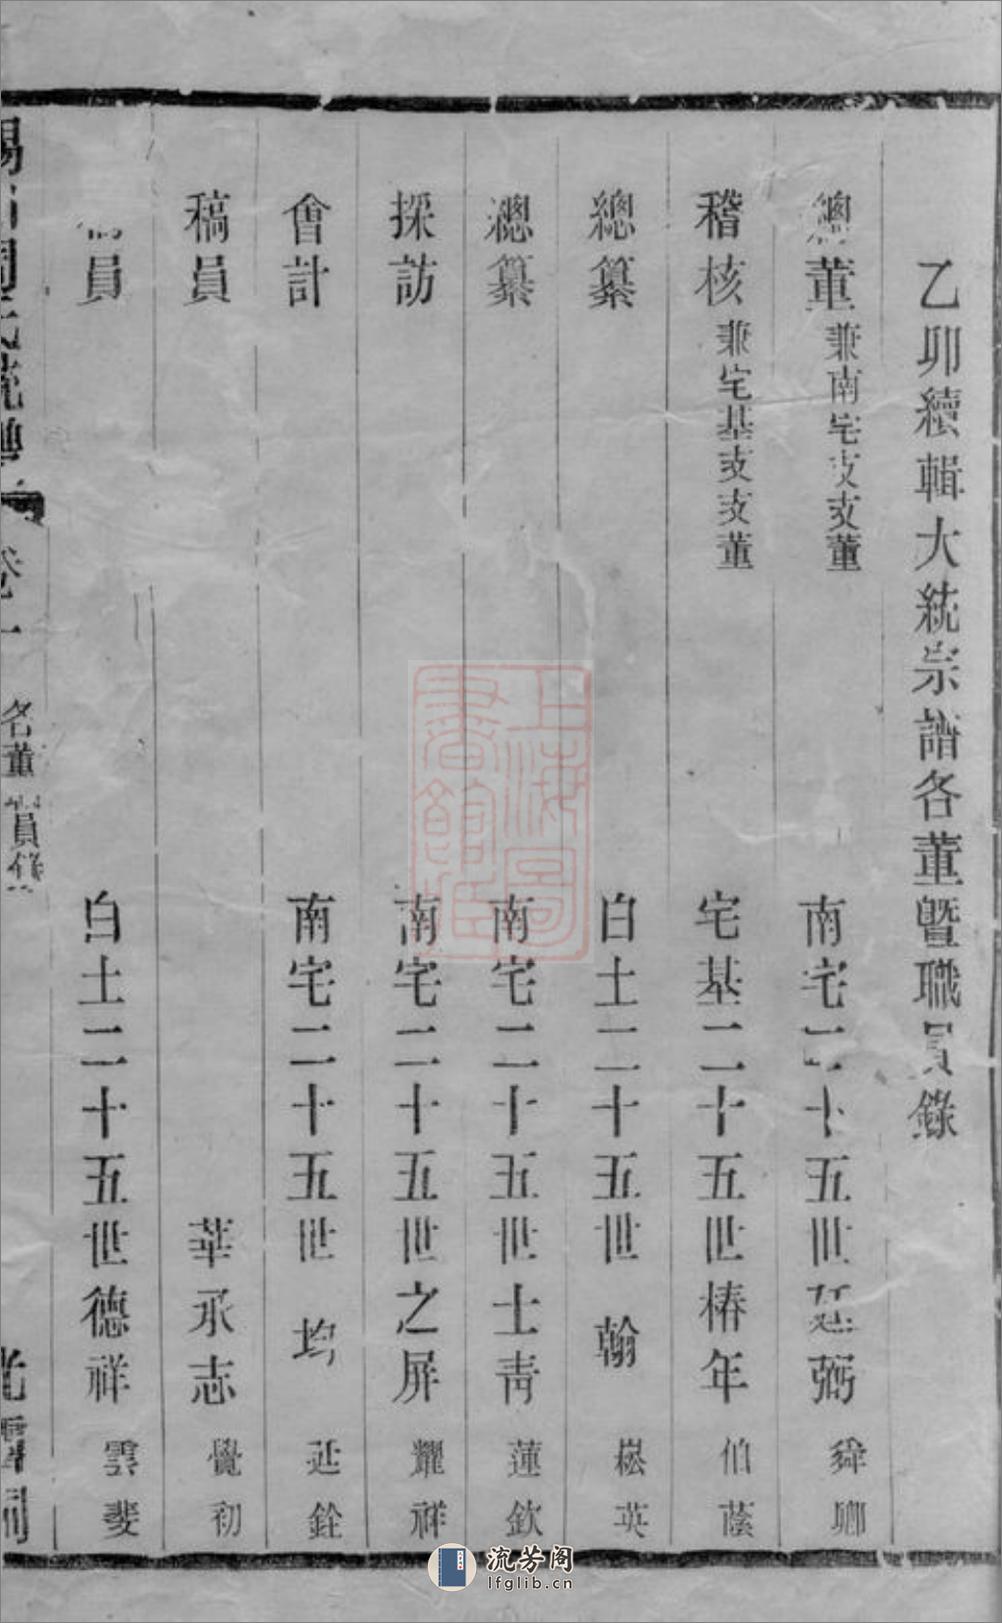 乙卯續輯大統宗譜各董曁職員錄
總董 兼南宅支支董 南宅二十五世 弼 舜卿
稽核 兼宅基支支董 宅基二十五世椿年 伯蔭
總纂 白土二十五世 翰 崧英
總纂 南宅二十五世士青 蓮欽
採訪 南宅二十五世之屏 耀祥
會計 南宅二十五世 均 延銓
稿員 華承志 覺初
員 白土二十五世德祥 雲斐
卷一 名董 員錄 光霽祠
上海圖書館藏
流芳阁
lfglib.cn